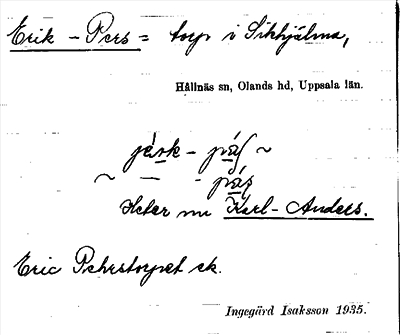 Erik-Pers = torp i Sikhjälma,
Hållnäs sn, Olands hd, Uppsala län.
jèrk-pás ~
~ — - páṣ
Heter nu Karl-Anders.
Eric Pehrstorpet ek.
Ingegärd Isaksson 1935.